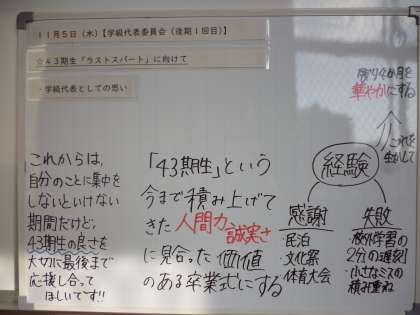 11月5日(水)【学級代表委員会(後期1回目)】
☆43期生「ラストスパート」に向けて
・学級代表としての思い
これからは、
自分のことに集中を
しないといけない
期間だけど、
43期生の良さを
大切に最後まで
応援し合って
ほしいです!!
「43期生」という
今まで積み上げて
きた人間力、誠実さ
に見合った価値
のある卒業式にする
残り4か月を
華やかにする
これを
生かして
経験
感謝
・民泊
・文化祭
・体育大会
失敗
・校外学習の
2分の遅刻
・小さなミスの
積み重ね